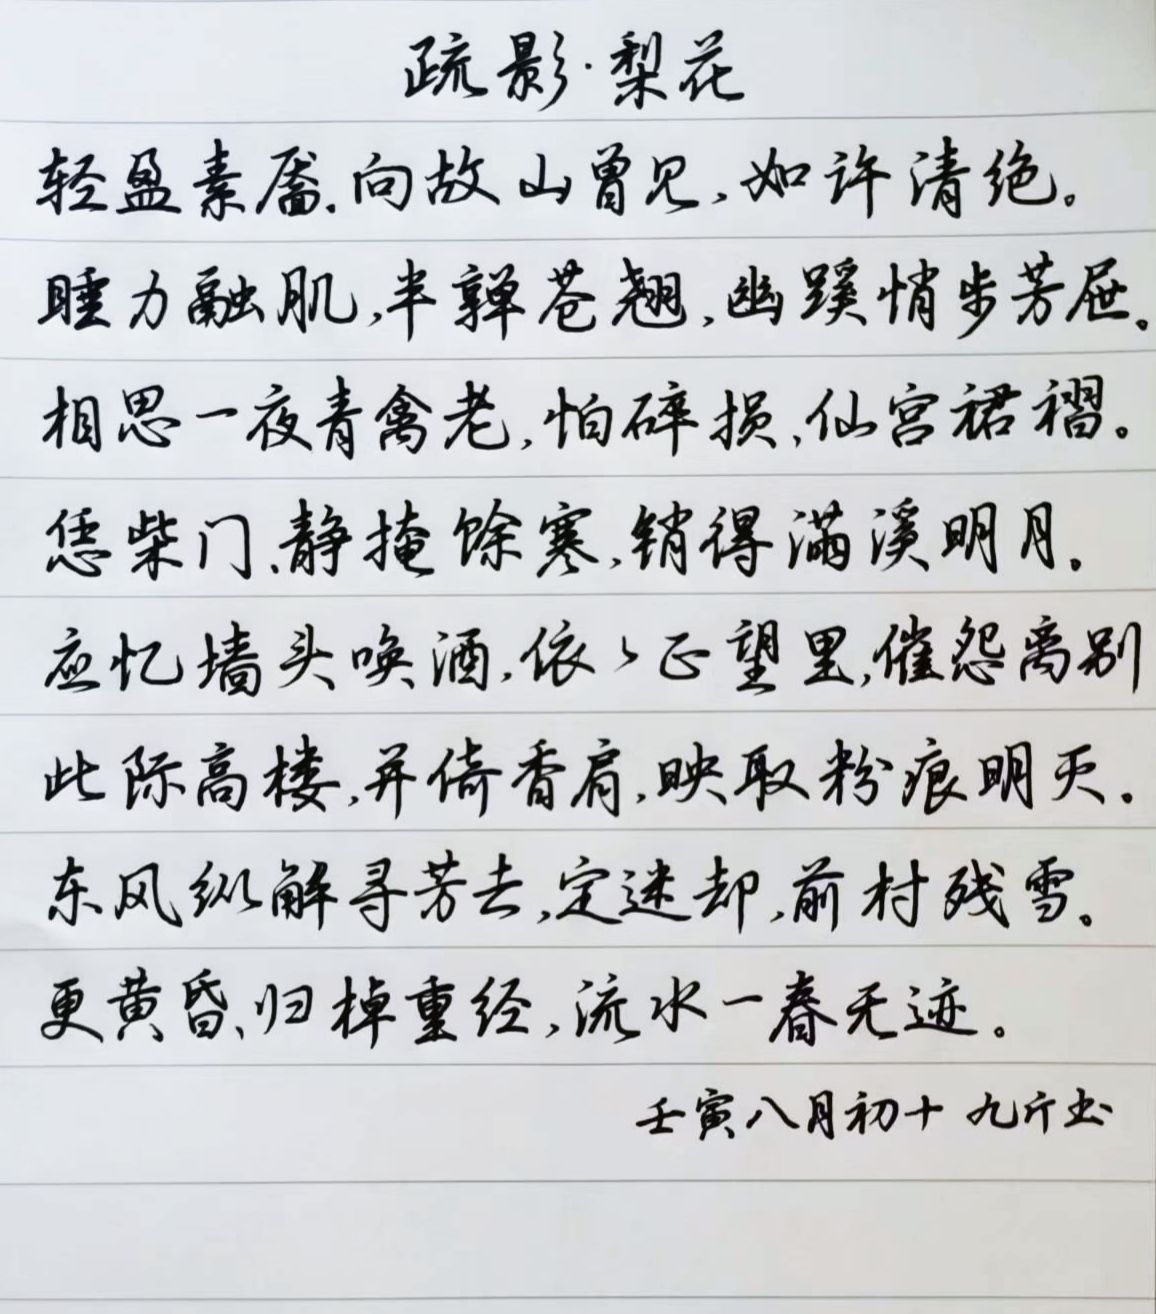 疏影·梨花
轻盈素靥、向故山曾见,如许清绝。
睡力融肌,半亸苍翘,幽蹊悄步芳屉。
相思一夜青禽老,怕碎损、仙宫裙褶。
恁柴门、静掩馀寒,销得满溪明月。
应忆墙头唤酒,依〻正望里,催怨离别
此际高楼,并倚香肩,映取粉痕明灭。
东风纵解寻芳去,定迷却,前村残雪。
更黄昏、归棹重经,流水一春无迹。
壬寅八月初十 九斤书